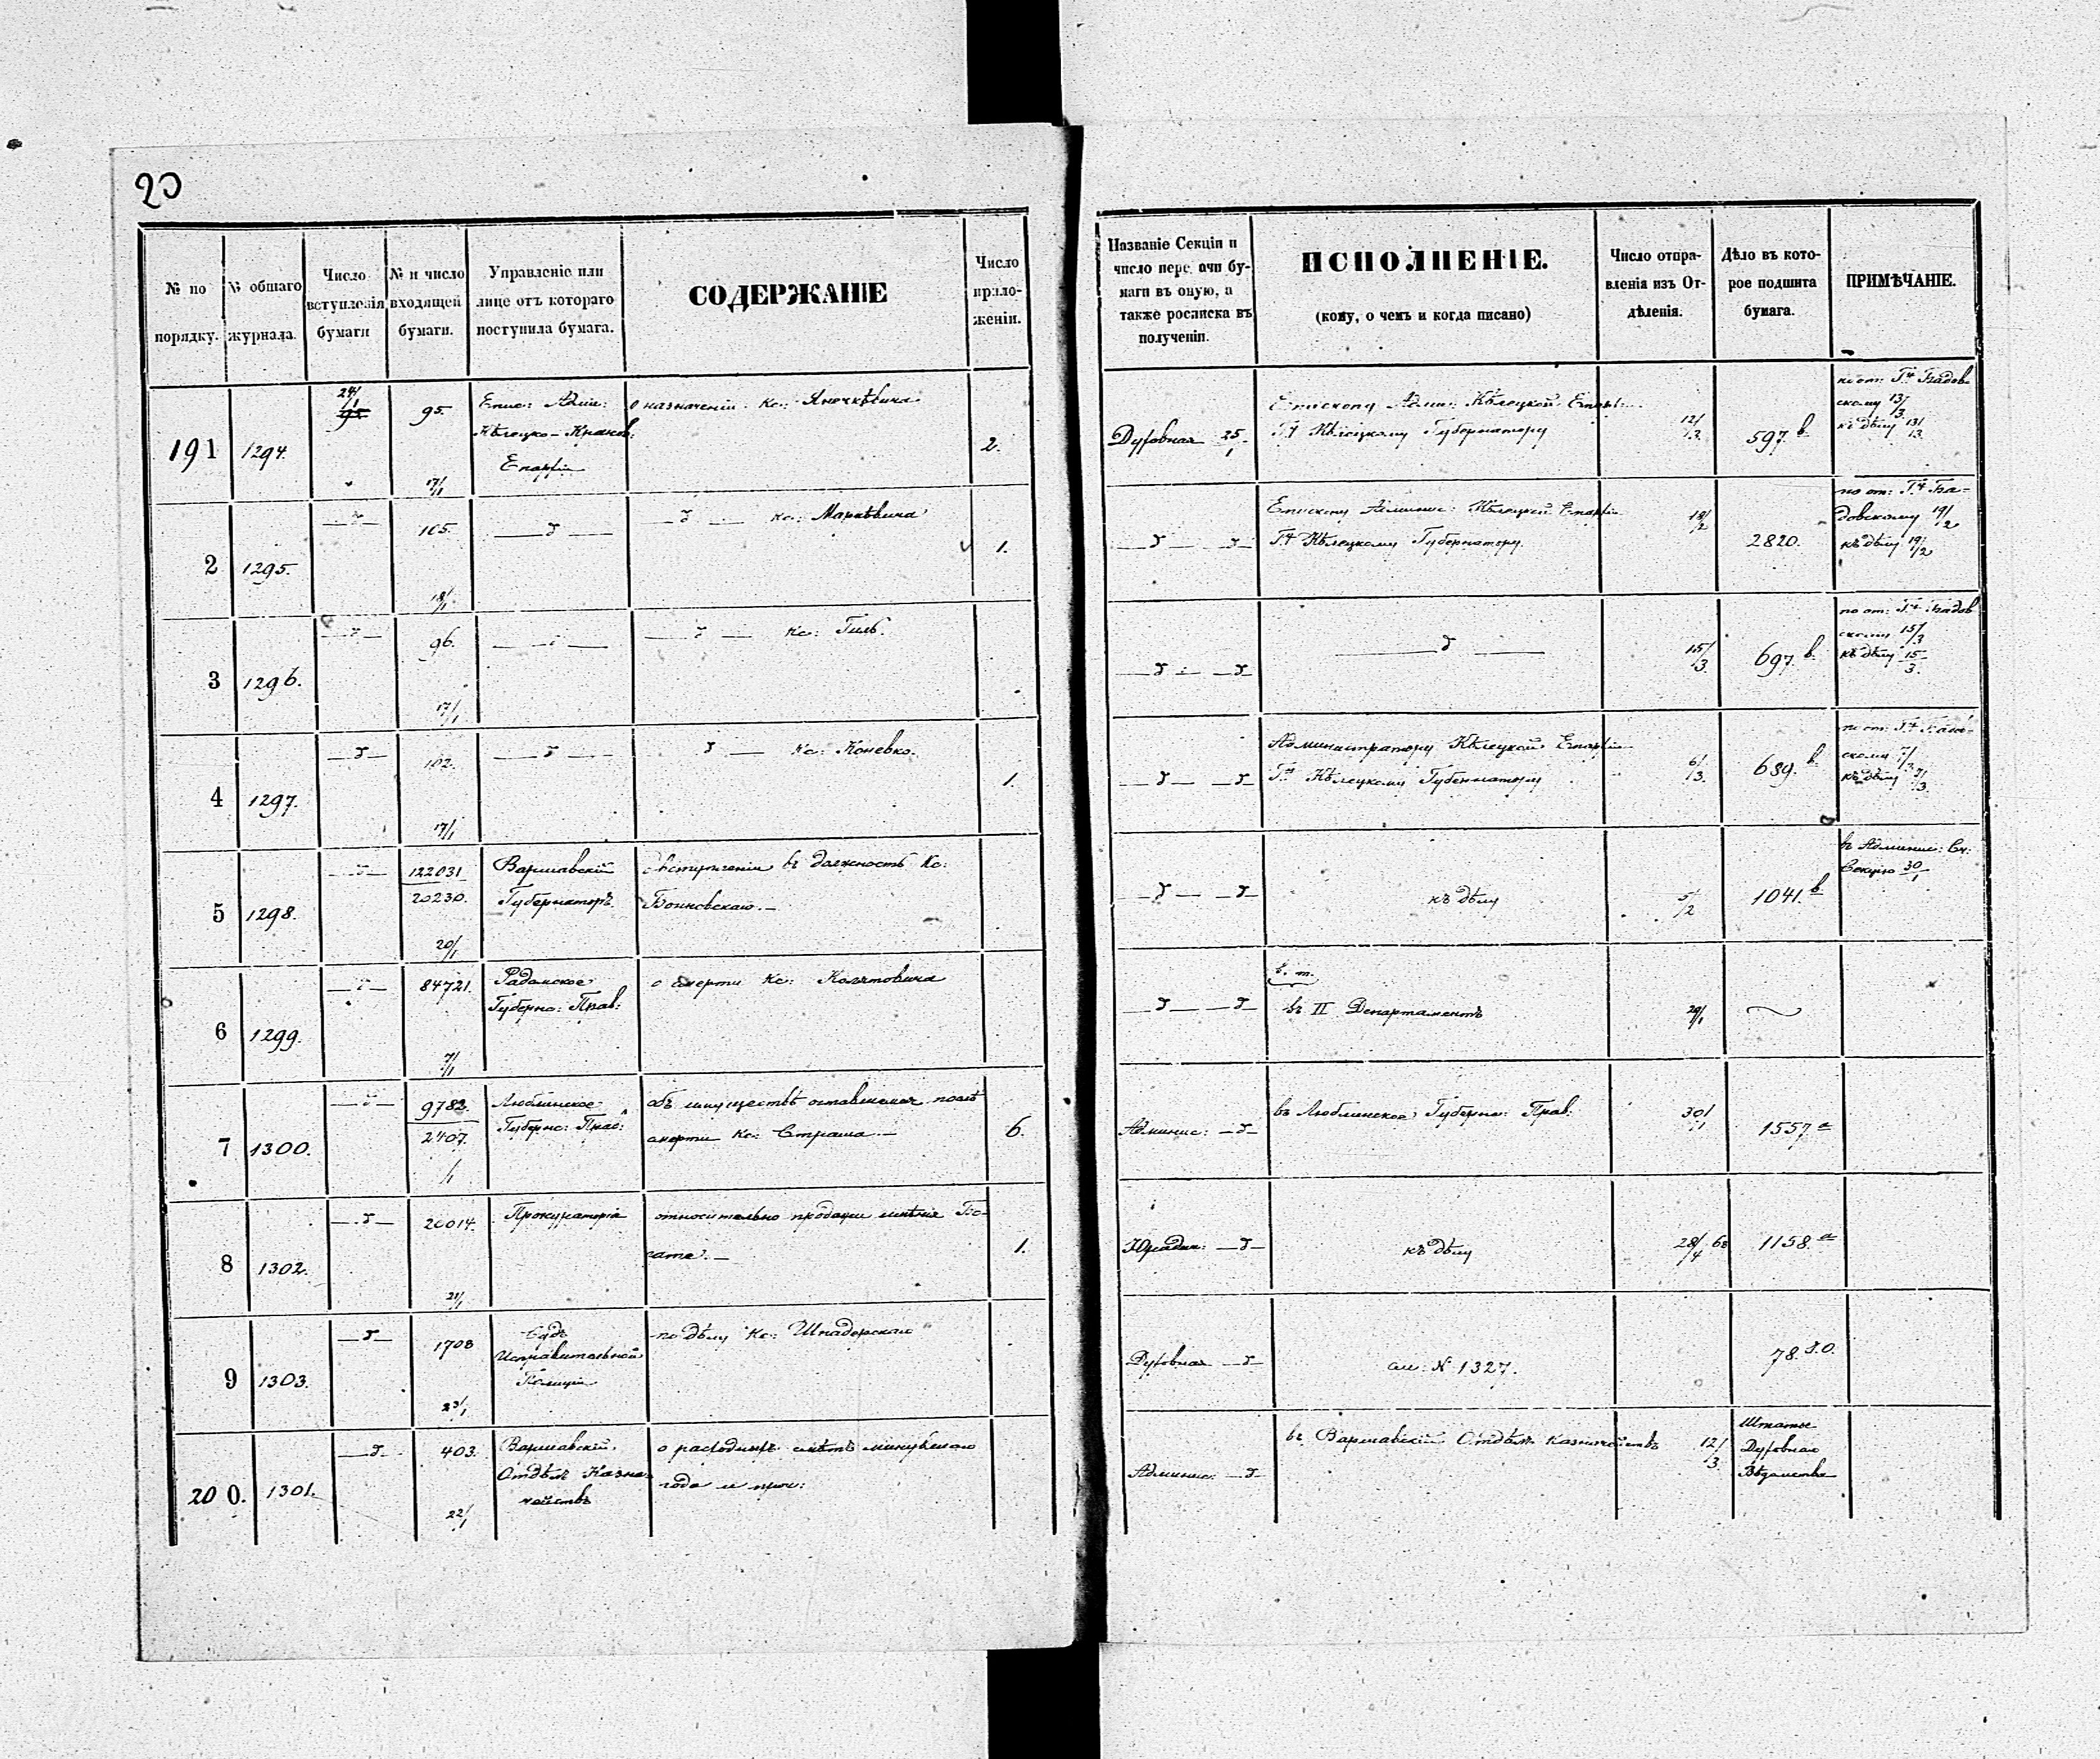 20
№ по порядку.
№ общаго журнала.
Число вступленія бумаги
№ и число входящей бумаги.
Управленіе или лице отъ котораго поступила бумага.
СОДЕРЖАНІЕ
Число приложеніи.
Названіе Секціи и число передачи бумаги въ оную, а также росписка въ полученіи.
ИСПОЛНЕНІЕ.
(кому, о чемъ и когда писано)
Число отправленія изъ Отдѣленія.
Дѣло въ которое подшита бумага.
ПРИМѢЧАНІЕ.
191
1294.
24/1
95.
17/1
Епис: Адми:
Кѣлецко-Краков:
Епархіи
о назначеніи Кс:
2.
Духовная 25/1
Епископу Админ: Кѣлецкой Епархіи
Гну Кѣлецкому Губернатору
12/3
597. в.
13/3
къ дѣлу 13/3
2
1295.
105.
18/1
Кс: Маркевича
1.
Епископу Админис: Кѣлецкой Епархіи
Гну Кѣлецкому Губернатору.
18/2
2820.
по от: Гну Бадовскому 19/2
къ дѣлу 19/2
3
1296.
96.
17/1
Кс: Гиль.
15/3
697. в.
по от: Гну Бадовскому 15/3
къ дѣлу 15/3
4
1297.
102.
17/1
Кс: Коневко.
1.
Администратору Кѣлецкой Епархіи
Гну Кѣлецкому Губернатору
6/3
689. в.
къ дѣлу 7/3
5
1298.
122031
20230.
20/1
Варшавскій
Губернаторъ
о вступленіи въ должность Кс:
къ дѣлу
5/2
1041. в.
въ Админис:
Секцію 30/1
6
1299.
84721.
7/1
Радомское
Губернс: Прав:
о смерти Кс:
в. т.
въ II Департаментъ
29/1
7
1300.
9782.
2407.
/1
Люблинское
Губернс: Прав:
объ имуществѣ оставшемся послѣ
смерти Кс: Страша.
6.
Админис:
въ Люблинское Губернс: Прав:
30/1
1557 а
8
1302.
20014.
21/1
Прокураторія
относительно продажи имѣнія
1.
Юридич:
къ дѣлу
28/4 68
1158. а
9
1303.
1708
23/1
Судъ
Исправительной
Полиціи
по дѣлу Кс: Шпадерскаго
Духовная
см: № 1327.
78. S.O.
200.
1301.
403.
22/1
Варшавскій
Отдѣлъ Казначействъ
о расходныхъ смѣтъ минувшаго
года и проч:
Админис:
въ Варшавскій Отдѣлъ Казначействъ
12/3
Штаты
Духовнаго
Вѣдомства